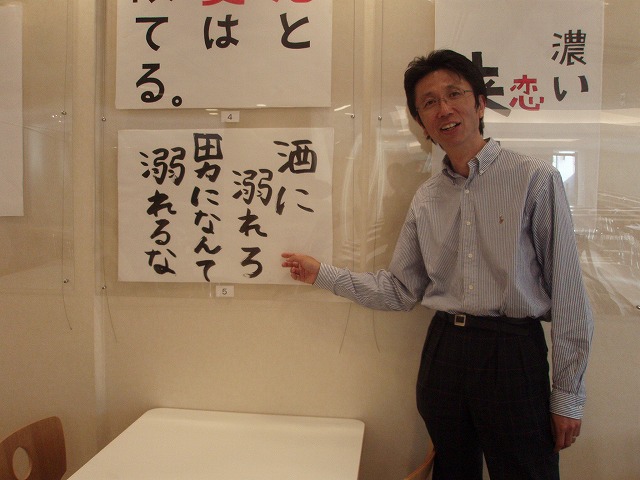 と
は
てる。
4
酒に
溺れろ
男になんて
溺れるな
5
濃い
恋